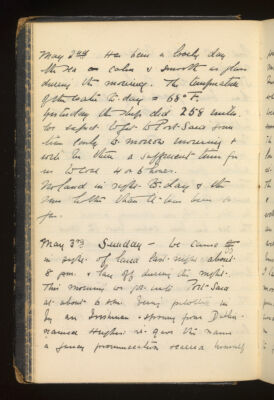 May 2nd Has been a lovely day
the sea as calm & smooth as glass
during the morning. The temperature
of the water to-day = 68° F.
Yesterday the ship did 258 miles.
We expect to get to Port Said some
time early to morrow morning &
will be there a sufficient time for
us to coal 4 or 5 hours.
No land in sight to-day & the
sun hotter than it has been so
far.
May 3rd Sunday - We came
in sight of land last night about
8 pm. & lay off during the night.
This morning we got into Port Said
at about 6 a.m. being piloted in
by an Irishman - strong from Dublin
named Hughes he gave the name
a funny pronunciation seemed himself